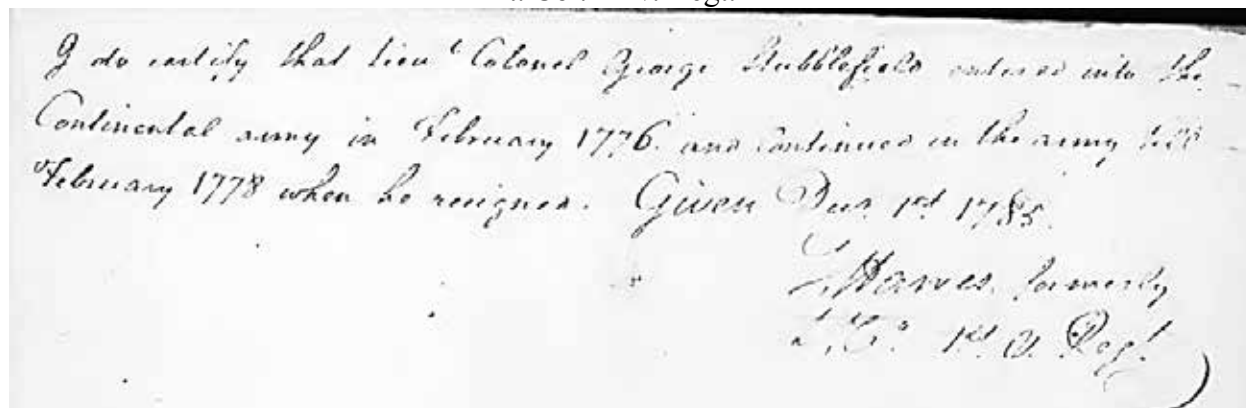 I do certify that Lieut Colonel George Stubblefield entered into the
Continental army in February 1776. and continued in the army till
February 1778 when he resigned. Given Decr 1st 1785.
Hawes. formerly
L. Co. 1st V. Regt.